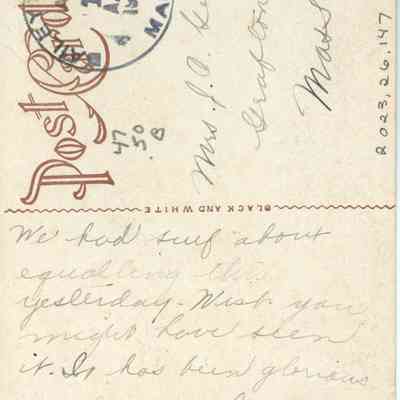 Post Card
MA
19
Mrs. J. A.
Grafton
Mass
47
50
8
2023.26.147
BLACK AND WHITE
We had surf about
equalling this
yesterday - Wish you
might have seen
it. It has been glorious